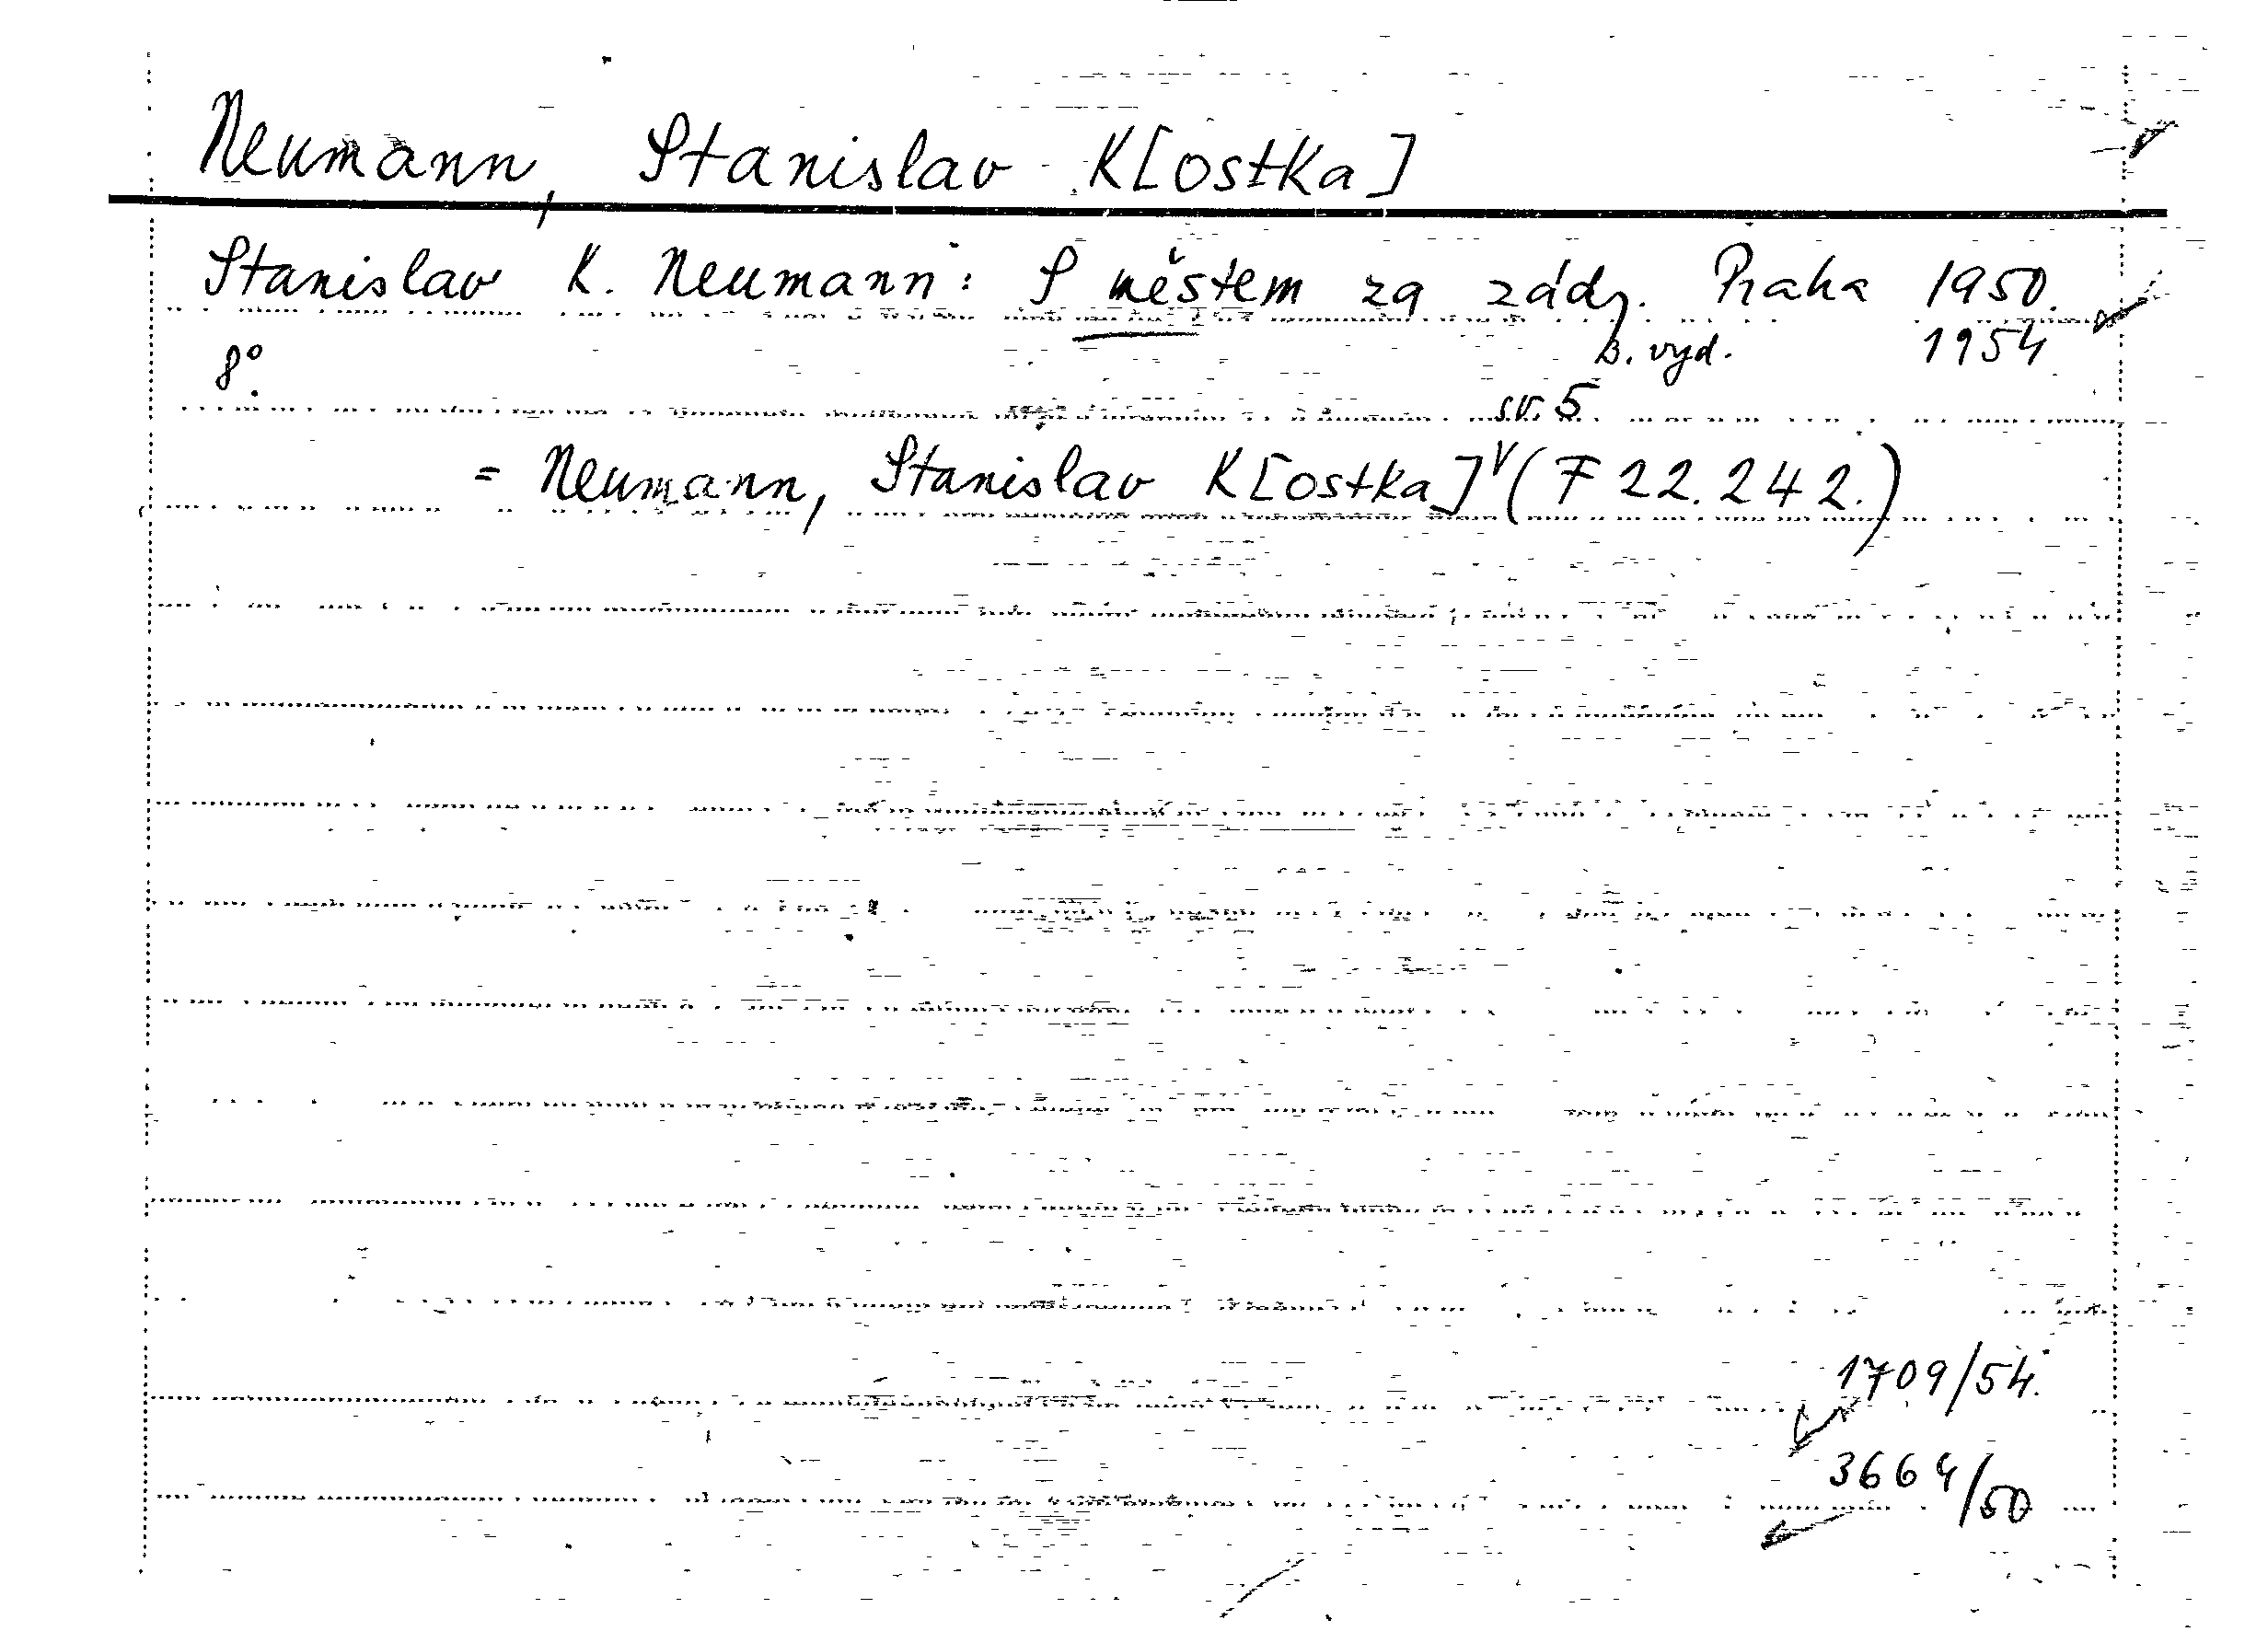 Neumann, Stanislav K[ostka]
Stanislav K. Neumann: S městem za zády. Praha 1950.
8°. B. vyd. 1954
sv. 5
= Neumann, Stanislav K[ostka] (F 22.242.)
1709/54.
3664/50